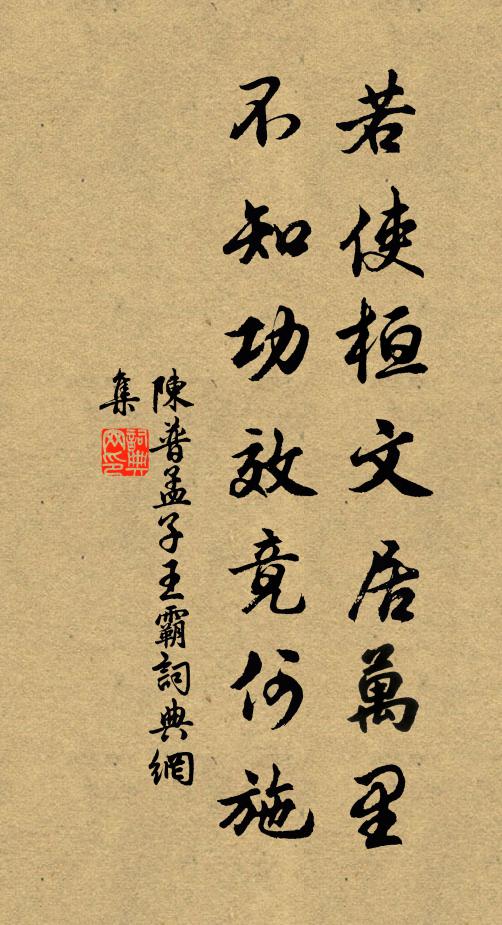 若使桓文居萬里
不知功效竟何施
陳普孟子王霸詞典網
集
詞典網印